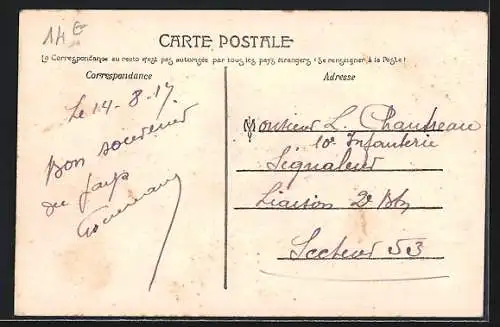 14 €
CARTE POSTALE
La Correspondance au recto n'est pas autorisée par tous les pays étrangers (Se renseigner à la Poste)
Correspondance
Adresse
Le 14-8-17
Bon souvenir
du pays
Monsieur L. Chautreau
10e Infanterie
Signaleur
Liaison 2e Btn
Secteur 53